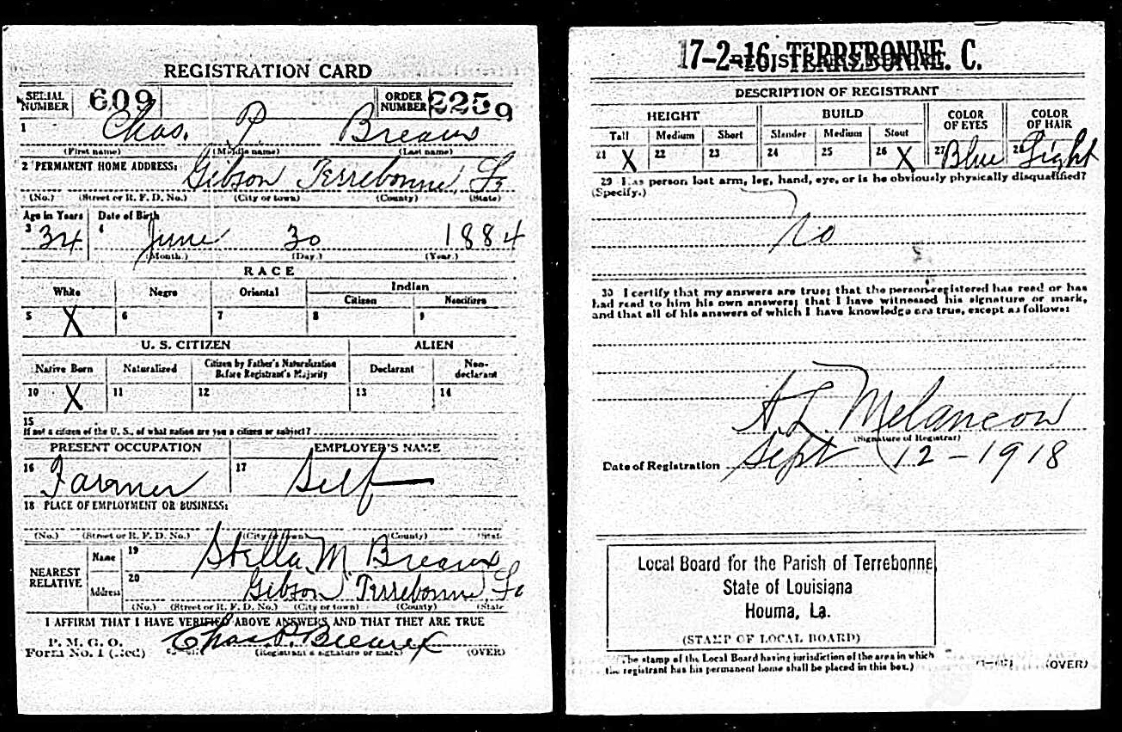 REGISTRATION CARD
SERIAL NUMBER 609 ORDER NUMBER 2259
1 Chas. P Breaux
(First name) (Middle name) (Last name)
2 PERMANENT HOME ADDRESS:
Gibson Terrebonne, La
(No.) (Street or R. F. D. No.) (City or town) (County) (State)
Age in Years Date of Birth
3 34 4 June 30 1884
(Month.) (Day.) (Year.)
RACE
White Negro Oriental Indian
Citizen Noncitizen
5 X 6 7 8 9
U. S. CITIZEN ALIEN
Native Born Naturalized Citizen by Father's Naturalization Before Registrant's Majority Declarant Non-declarant
10 X 11 12 13 14
15
If not a citizen of the U. S., of what nation are you a citizen or subject?
PRESENT OCCUPATION EMPLOYER'S NAME
16 Farmer 17 Self
18 PLACE OF EMPLOYMENT OR BUSINESS:
(No.) (Street or R. F. D. No.) (City or town) (County) (State
NEAREST RELATIVE Name 19 Stella M Breaux
Address 20 Gibson Terrebonne La
(No.) (Street or R. F. D. No.) (City or town) (County) (State
I AFFIRM THAT I HAVE VERIFIED ABOVE ANSWERS AND THAT THEY ARE TRUE
P. M. G. O.
Form No. 1 (Red) Chas. P. Breaux (Registrant's signature or mark) (OVER)
17-2-16, TERREBONNE. C.
DESCRIPTION OF REGISTRANT
HEIGHT BUILD COLOR OF EYES COLOR OF HAIR
Tall Medium Short Slender Medium Stout
21 X 22 23 24 25 26 X 27 Blue 28 Light
29 Has person lost arm, leg, hand, eye, or is he obviously physically disqualified?
(Specify.)
No
30 I certify that my answers are true; that the person registered has read or has
had read to him his own answers; that I have witnessed his signature or mark,
and that all of his answers of which I have knowledge are true, except as follows:
A. L. Melancon
(Signature of Registrar)
Date of Registration Sept 12-1918
Local Board for the Parish of Terrebonne,
State of Louisiana
Houma, La.
(STAMP OF LOCAL BOARD)
(The stamp of the Local Board having jurisdiction of the area in which
the registrant has his permanent home shall be placed in this box.)
(OVER)